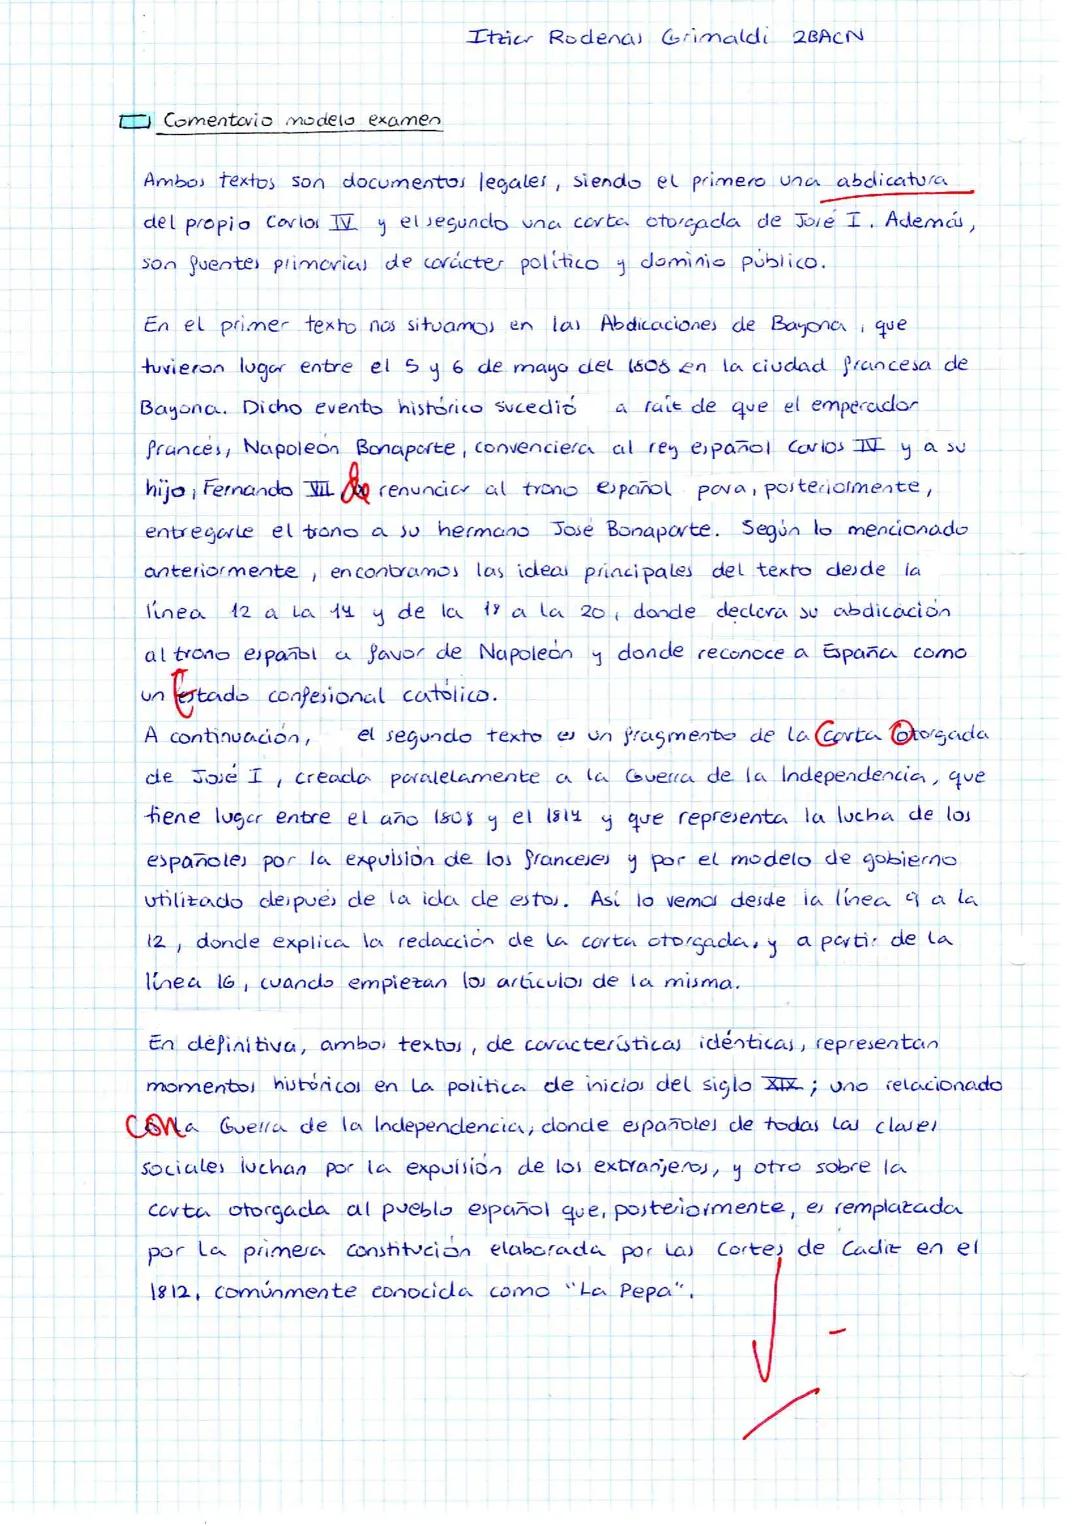 Itziar Rodenas Grimaldi 2BACN
Comentario modelo examen
Ambos textos son documentos legales, siendo el primero una abdicatura
del propio Carlos IV y el segundo una carta otorgada de José I. Además,
son fuentes primarias de carácter político y dominio público.
En el primer texto nos situamos en las Abdicaciones de Bayona, que
tuvieron lugar entre el 5 y 6 de mayo del 1808 en la ciudad francesa de
Bayona. Dicho evento histórico sucedió a raiz de que el emperador
francés, Napoleón Bonaparte, convenciera al rey español Carlos IV y a su
hijo, Fernando VII de renunciar al trono español para, posteriormente,
entregarle el trono a su hermano José Bonaparte. Según lo mencionado
anteriormente, encontramos las ideas principales del texto desde la
línea 12 a la 14 y de la 18 a la 20, donde declara su abdicación
al trono español a favor de Napoleón y donde reconoce a España como
un Estado confesional católico.
A continuación, el segundo texto es un fragmento de la Carta Otorgada
de José I, creada paralelamente a la Guerra de la Independencia, que
tiene lugar entre el año 1808 y el 1814 y que representa la lucha de los
españoles por la expulsión de los franceses y por el modelo de gobierno
utilizado después de la ida de estos. Así lo vemos desde la línea 9 a la
12, donde explica la redacción de la carta otorgada, y a partir de la
línea 16, cuando empiezan los artículos de la misma.
En definitiva, ambos textos, de características idénticas, representan
momentos históricos en la política de inicios del siglo XIX; uno relacionado
con la Guerra de la Independencia, donde españoles de todas las clases
sociales luchan por la expulsión de los extranjeros, y otro sobre la
carta otorgada al pueblo español que, posteriormente, es remplazada
por la primera constitución elaborada por las Cortes de Cadiz en el
1812, comúnmente conocida como "La Pepa".